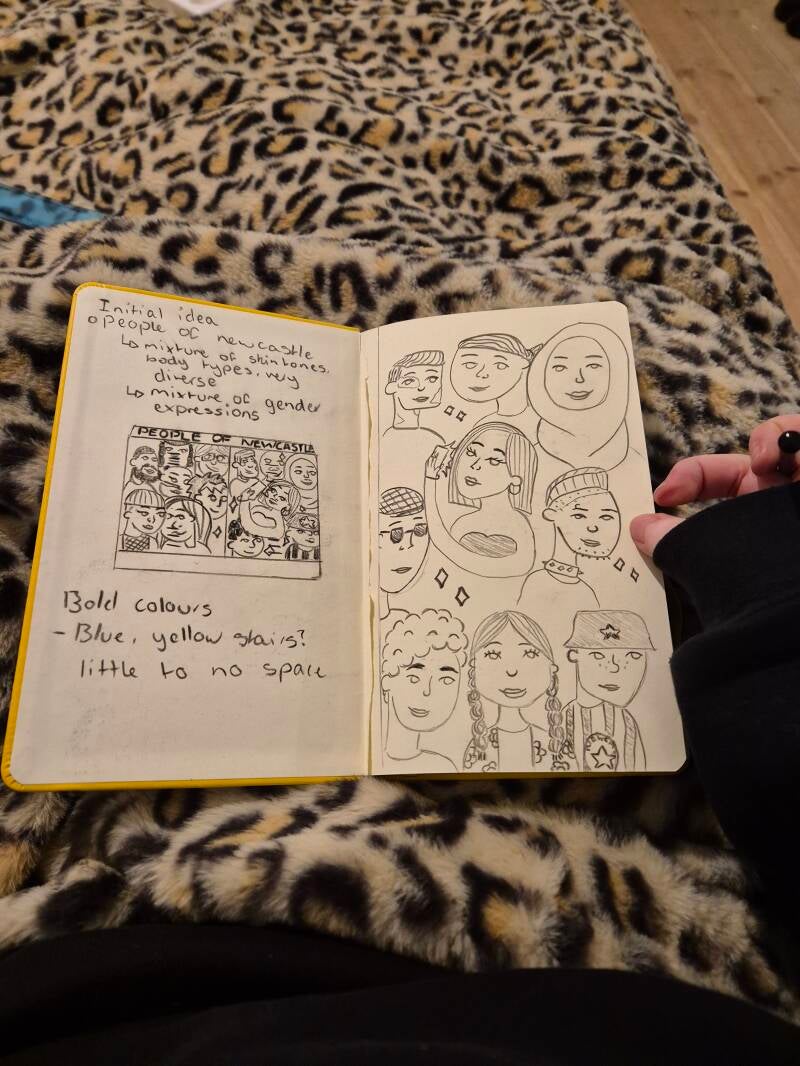 Initial idea
o People of newcastle
↳ mixture of skin tones,
body types, very
diverse
↳ mixture of gender
expressions
PEOPLE OF NEWCASTLE
Bold colours
- Blue, yellow stairs?
little to no space